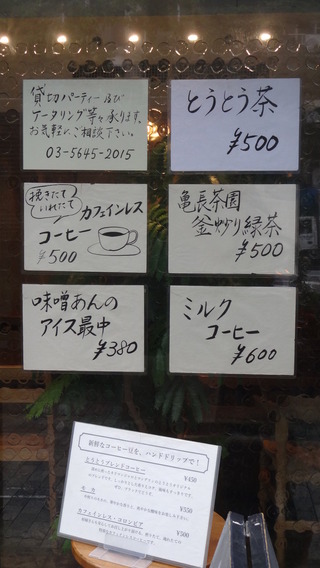 貸切パーティー及び
ケータリング等々承ります。
お気軽にご相談下さい。
03-5645-2015
とうとう茶
¥500
挽きたて
いれたて
カフェインレス
コーヒー
¥500
亀長茶園
釜炒り緑茶
¥500
味噌あんの
アイス最中
¥380
ミルク
コーヒー
¥600
新鮮なコーヒー豆を、ハンドドリップで！
とうとうブレンドコーヒー
¥450
モカ
¥550
カフェインレス・コロンビア
¥500